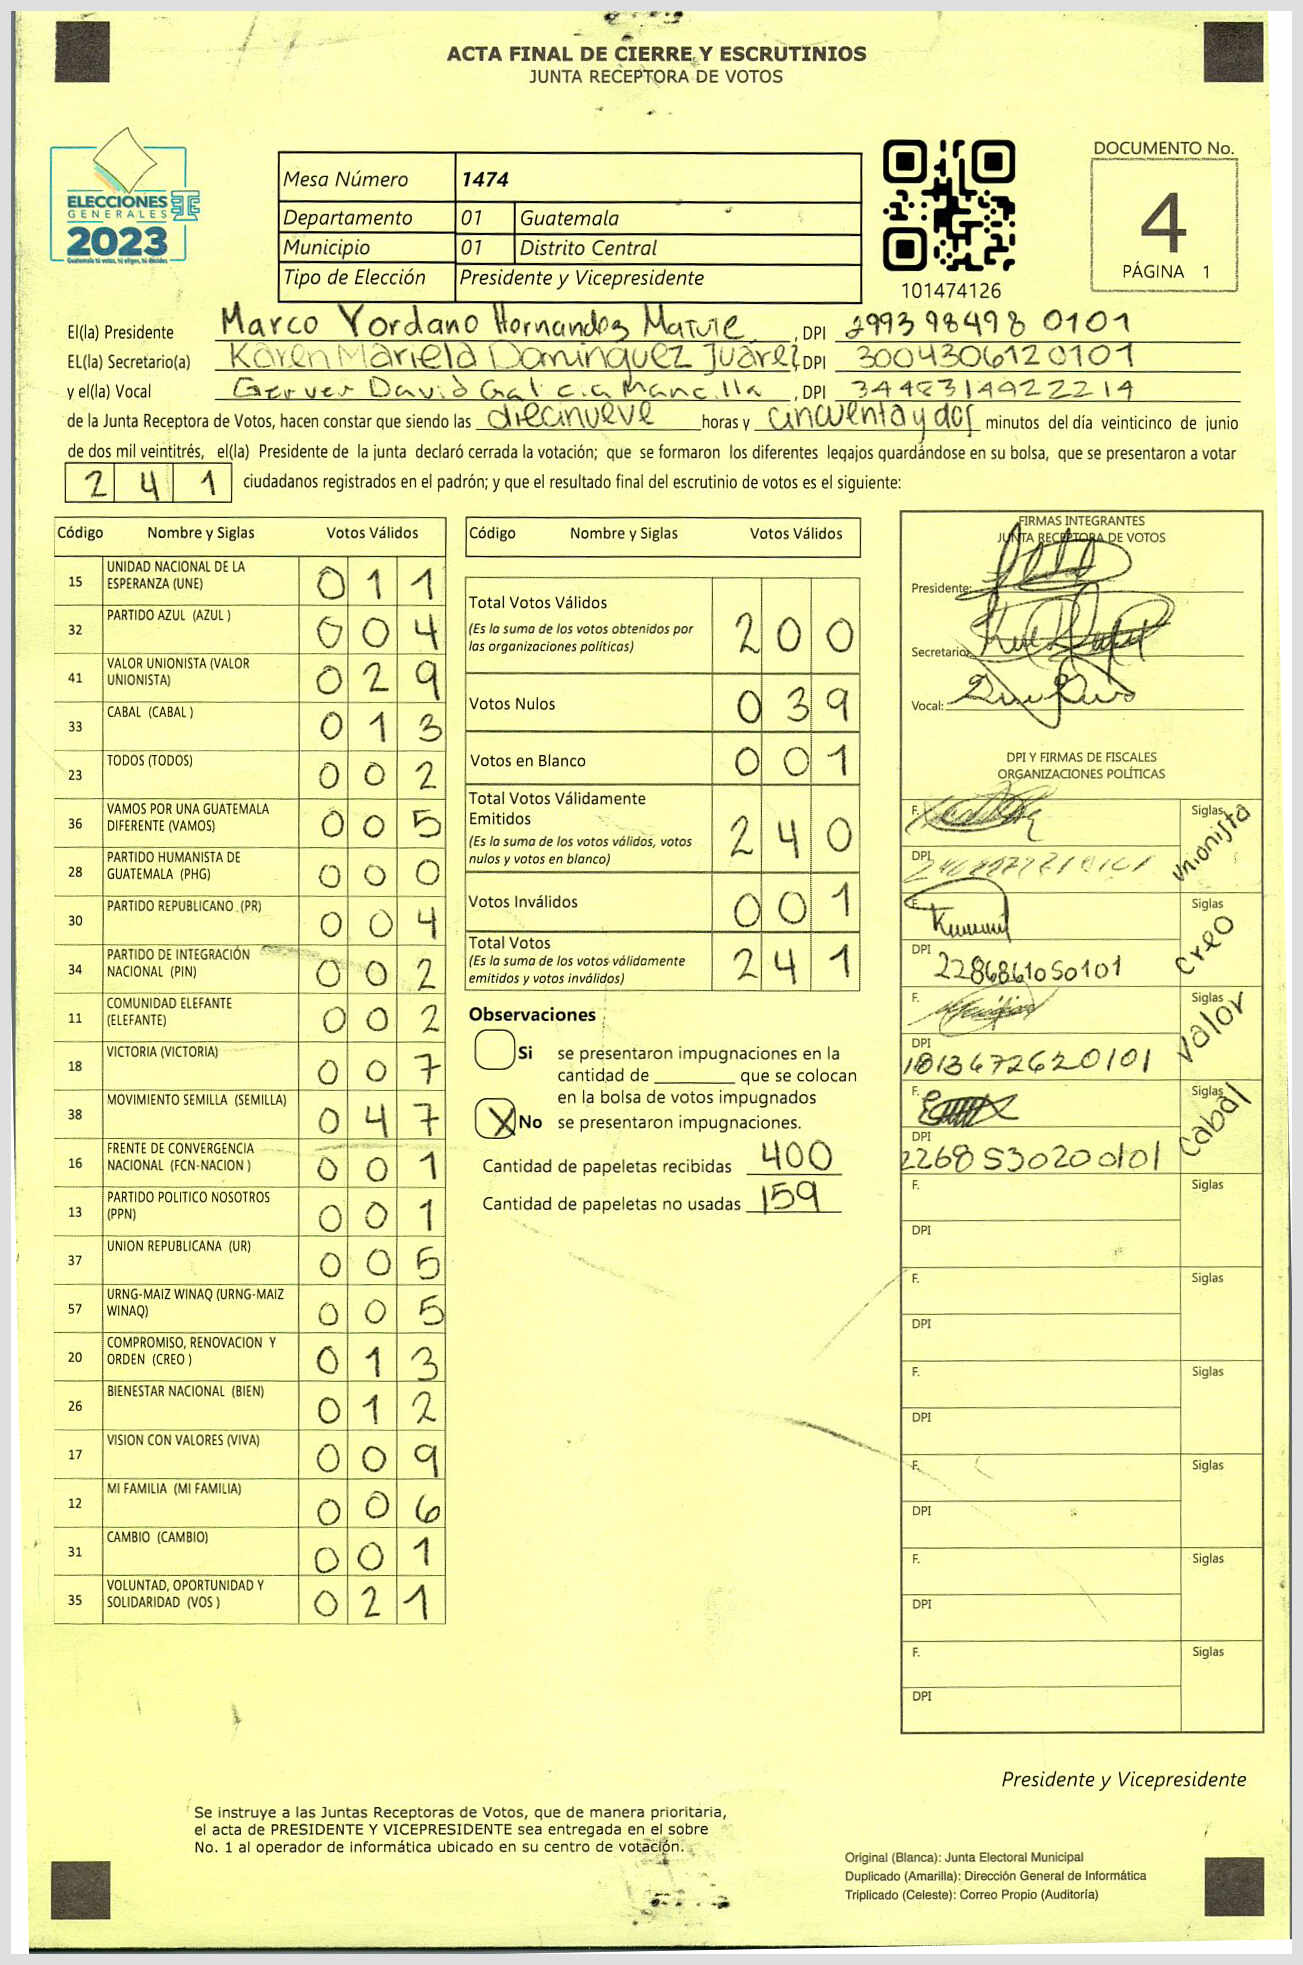 ACTA FINAL DE CIERRE Y ESCRUTINIOS
JUNTA RECEPTORA DE VOTOS
ELECCIONES
GENERALES
2023
Guatemala tú votas, tú eliges, tú decides
Mesa Número 1474
Departamento 01 Guatemala
Municipio 01 Distrito Central
Tipo de Elección Presidente y Vicepresidente
101474126
DOCUMENTO No.
4
PÁGINA 1
El(la) Presidente Marco Yordano Hernandez , DPI 299398498 0101
EL(la) Secretario(a) Karen Mariela Dominguez Juárez, DPI 3004306120101
y el(la) Vocal Gerver David Galicia Mancilla , DPI 3448314922214
de la Junta Receptora de Votos, hacen constar que siendo las diecinueve horas y cincuenta y dos minutos del día veinticinco de junio
de dos mil veintitrés, el(la) Presidente de la junta declaró cerrada la votación; que se formaron los diferentes legajos quardándose en su bolsa, que se presentaron a votar
2 4 1 ciudadanos registrados en el padrón; y que el resultado final del escrutinio de votos es el siguiente:
Código Nombre y Siglas Votos Válidos
15 UNIDAD NACIONAL DE LA ESPERANZA (UNE) 0 1 1
32 PARTIDO AZUL (AZUL ) 0 0 4
41 VALOR UNIONISTA (VALOR UNIONISTA) 0 2 9
33 CABAL (CABAL ) 0 1 3
23 TODOS (TODOS) 0 0 2
36 VAMOS POR UNA GUATEMALA DIFERENTE (VAMOS) 0 0 5
28 PARTIDO HUMANISTA DE GUATEMALA (PHG) 0 0 0
30 PARTIDO REPUBLICANO (PR) 0 0 4
34 PARTIDO DE INTEGRACIÓN NACIONAL (PIN) 0 0 2
11 COMUNIDAD ELEFANTE (ELEFANTE) 0 0 2
18 VICTORIA (VICTORIA) 0 0 7
38 MOVIMIENTO SEMILLA (SEMILLA) 0 4 7
16 FRENTE DE CONVERGENCIA NACIONAL (FCN-NACION ) 0 0 1
13 PARTIDO POLITICO NOSOTROS (PPN) 0 0 1
37 UNION REPUBLICANA (UR) 0 0 5
57 URNG-MAIZ WINAQ (URNG-MAIZ WINAQ) 0 0 5
20 COMPROMISO, RENOVACION Y ORDEN (CREO ) 0 1 3
26 BIENESTAR NACIONAL (BIEN) 0 1 2
17 VISION CON VALORES (VIVA) 0 0 9
12 MI FAMILIA (MI FAMILIA) 0 0 6
31 CAMBIO (CAMBIO) 0 0 1
35 VOLUNTAD, OPORTUNIDAD Y SOLIDARIDAD (VOS ) 0 2 1
Código Nombre y Siglas Votos Válidos
Total Votos Válidos 2 0 0
(Es la suma de los votos obtenidos por
las organizaciones políticas)
Votos Nulos 0 3 9
Votos en Blanco 0 0 1
Total Votos Válidamente
Emitidos 2 4 0
(Es la suma de los votos válidos, votos
nulos y votos en blanco)
Votos Inválidos 0 0 1
Total Votos 2 4 1
(Es la suma de los votos válidamente
emitidos y votos inválidos)
Observaciones
Si se presentaron impugnaciones en la
cantidad de ________ que se colocan
en la bolsa de votos impugnados
X No se presentaron impugnaciones.
Cantidad de papeletas recibidas 400
Cantidad de papeletas no usadas 159
FIRMAS INTEGRANTES
JUNTA RECEPTORA DE VOTOS
Presidente:
Secretario:
Vocal:
DPI Y FIRMAS DE FISCALES
ORGANIZACIONES POLÍTICAS
F. Siglas Unionista
DPI
F. Siglas Creo
DPI 2286861050101
F. Siglas Valor
DPI 1813672620101
F. Siglas Cabal
DPI 2268530200101
F. Siglas
DPI
F. Siglas
DPI
F. Siglas
DPI
F. Siglas
DPI
F. Siglas
DPI
F. Siglas
DPI
Presidente y Vicepresidente
Se instruye a las Juntas Receptoras de Votos, que de manera prioritaria,
el acta de PRESIDENTE Y VICEPRESIDENTE sea entregada en el sobre
No. 1 al operador de informática ubicado en su centro de votación.
Original (Blanca): Junta Electoral Municipal
Duplicado (Amarilla): Dirección General de Informática
Triplicado (Celeste): Correo Propio (Auditoría)